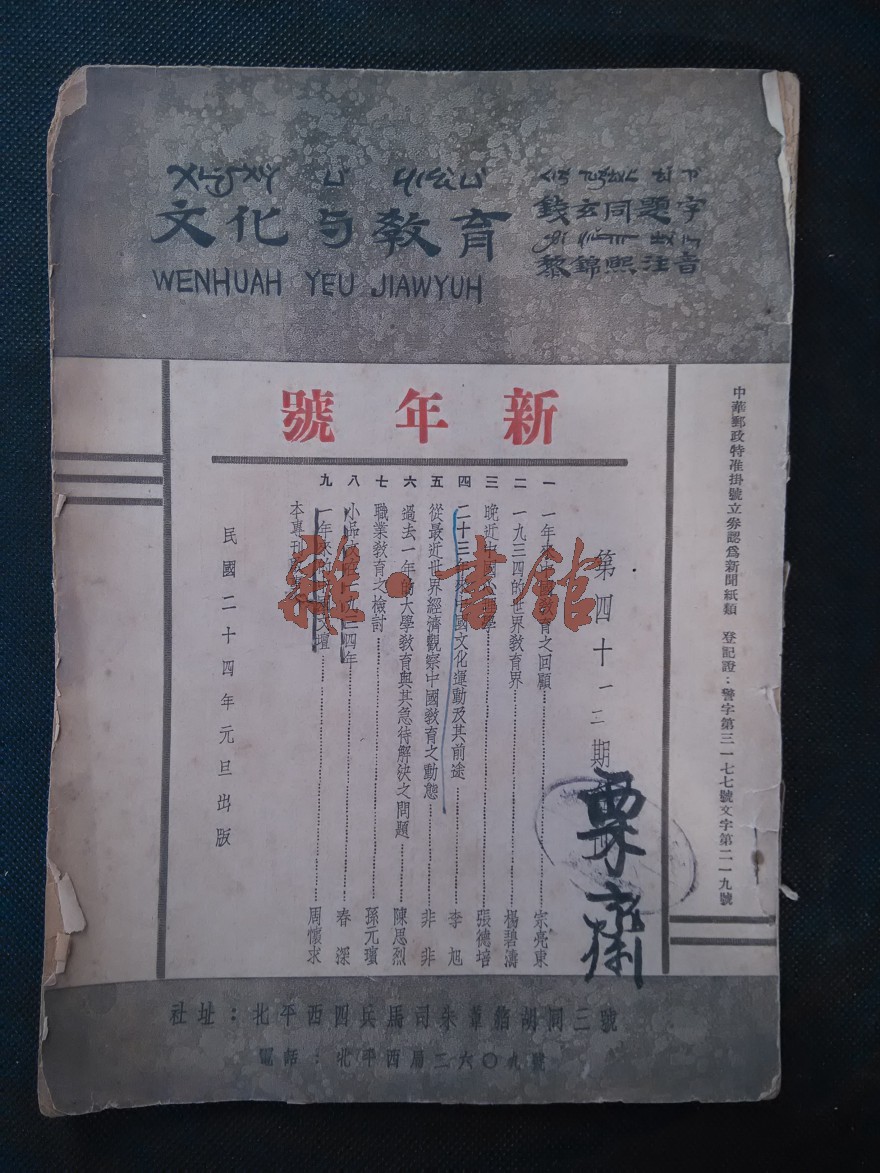 文化与敎育
WENHUAH YEU JIAWYUH
錢玄同題字
黎錦熙注音
新年號
中華郵政特准掛號立券認爲新聞紙類 登記證：警字第三一七七號文字第二一九號
第四十一二期
一 一年來 敎育之回顧 宗亮東
二 一九三四的世界敎育界 楊碧濤
三 晚近 學 張德培
四 二十三年來中國文化運動及其前途 李旭
五 從最近世界經濟觀察中國敎育之動態 非非
六 過去一年的大學敎育與其急待解決之問題 陳思烈
七 職業敎育之檢討 孫元璸
八 小品文 一九三四年 春深
九 一年來的 文壇 周懷求
本專刊
民國二十四年元旦出版
栗齋
雜·書館
社址：北平西四兵馬司朱葦箔胡同三號
電話：北平西局二六〇九號